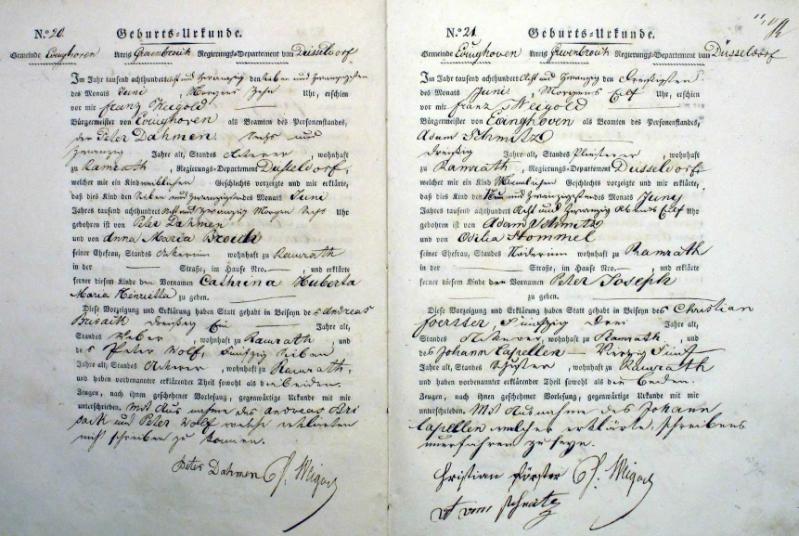 No. 20. Geburts-Urkunde.
Gemeinde Evinghoven Kreis Grevenbroich Regierungs-Departement von Düsseldorf
Im Jahr tausend achthundert acht und zwanzig den sieben und zwanzigsten
des Monats Juni, Morgens Zehn Uhr, erschien
vor mir Franz Weigold
Bürgermeister von Evinghoven als Beamten des Personenstandes,
der Peter Dahmen sechs und
zwanzig Jahre alt, Standes Ackerer, wohnhaft
zu Ramrath, Regierungs-Departement Düsseldorf,
welcher mir ein Kind weiblichen Geschlechts vorzeigte und mir erklärte,
daß dies Kind den sieben und zwanzigsten des Monats Juni
Jahres tausend achthundert acht und zwanzig Morgen sechs Uhr
geboren ist von Peter Dahmen
und von Anna Maria
seiner Ehefrau, Standes Ackerin wohnhaft zu Ramrath
in der Straße, im Hause Nro. und erklärte
ferner diesem Kinde den Vornamen Cathrina Huberta
Maria Henrietta zu geben.
Diese Vorzeigung und Erklärung haben Statt gehabt in Beiseyn des Andreas
dreißig Ein Jahre alt,
Standes Weber, wohnhaft zu Ramrath, und
des Peter Wolf, fünfzig sieben
Jahre alt, Standes Ackerer, wohnhaft zu Ramrath,
und haben vorbenannter erklärender Theil sowohl als die beiden
Zeugen, nach ihnen geschehener Vorlesung, gegenwärtige Urkunde mit mir
unterschrieben. Mit Ausnahme des Andreas
und Peter Wolf welche erklärten
nicht schreiben zu können.
Peter Dahmen F. Weigold
No. 21. Geburts-Urkunde.
Gemeinde Evinghoven Kreis Grevenbroich Regierungs-Departement von Düsseldorf
Im Jahr tausend achthundert acht und zwanzig den dreißigsten
des Monats Juni, Morgens Eilf Uhr, erschien
vor mir Franz Weigold
Bürgermeister von Evinghoven als Beamten des Personenstandes,
Adam Schmitz
dreißig Jahre alt, Standes, wohnhaft
zu Ramrath, Regierungs-Departement Düsseldorf
welcher mir ein Kind Männlichen Geschlechts vorzeigte und mir erklärte,
daß dies Kind den Neun und zwanzigsten des Monats Juny
Jahres tausend achthundert Acht und zwanzig Abends Eilf Uhr
geboren ist von Adam Schmitz
und von Hommel
seiner Ehefrau, Standes wohnhaft zu Ramrath
in der Straße, im Hause Nro. und erklärte
ferner diesem Kinde den Vornamen Peter Joseph
zu geben.
Diese Vorzeigung und Erklärung haben Statt gehabt in Beiseyn des Christian
Foerster, Fünfzig Drei Jahre alt,
Standes Ackerer, wohnhaft zu Ramrath, und
des Johann Capellen Vierzig Fünf
Jahre alt, Standes, wohnhaft zu Ramrath
und haben vorbenannter erklärender Theil sowohl als die beiden
Zeugen, nach ihnen geschehener Vorlesung, gegenwärtige Urkunde mit mir
unterschrieben. Mit Ausnahme des Johann
Capellen welcher erklärte, schreibens
unerfahren zu seyn.
Christian Förster F. Weigold
Schmitz